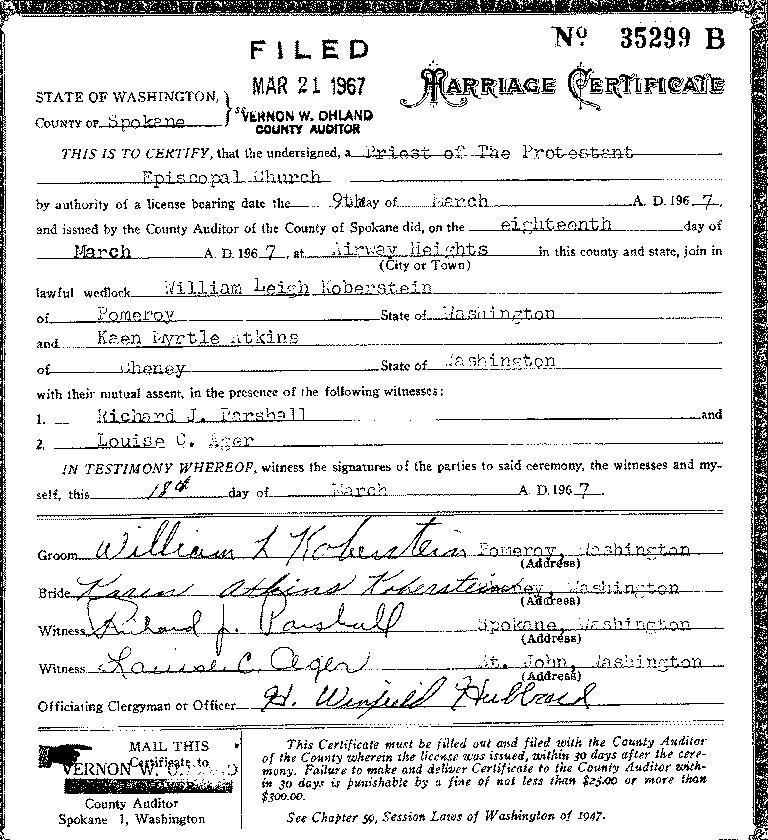 FILED
Nº 35299 B
MAR 21 1967
MARRIAGE CERTIFICATE
STATE OF WASHINGTON, } ss
COUNTY OF Spokane
VERNON W. OHLAND
COUNTY AUDITOR
THIS IS TO CERTIFY, that the undersigned, a Priest of The Protestant
Episcopal Church
by authority of a license bearing date the 9th day of March A. D. 1967,
and issued by the County Auditor of the County of Spokane did, on the eighteenth day of
March A. D. 1967, at Airway Heights in this county and state, join in
(City or Town)
lawful wedlock William Leigh Koberstein
of Pomeroy State of Washington
and Kaen Myrtle Atkins
of Cheney State of Washington
with their mutual assent, in the presence of the following witnesses:
1. Richard J. Parshall and
2. Louise C. Ager
IN TESTIMONY WHEREOF, witness the signatures of the parties to said ceremony, the witnesses and my-
self, this 18th day of March A. D. 1967.
Groom William L Koberstein Pomeroy, Washington
(Address)
Bride Karen Atkins Koberstein Cheney, Washington
(Address)
Witness Richard J. Parshall Spokane, Washington
(Address)
Witness Louise C. Ager St. John, Washington
(Address)
Officiating Clergyman or Officer H. Winfield Hubbard
MAIL THIS
Certificate to
VERNON W. OHLAND
County Auditor
Spokane 1, Washington
This Certificate must be filled out and filed with the County Auditor
of the County wherein the license was issued, within 30 days after the cere-
mony. Failure to make and deliver Certificate to the County Auditor with-
in 30 days is punishable by a fine of not less than $25.00 or more than
$300.00.
See Chapter 59, Session Laws of Washington of 1947.